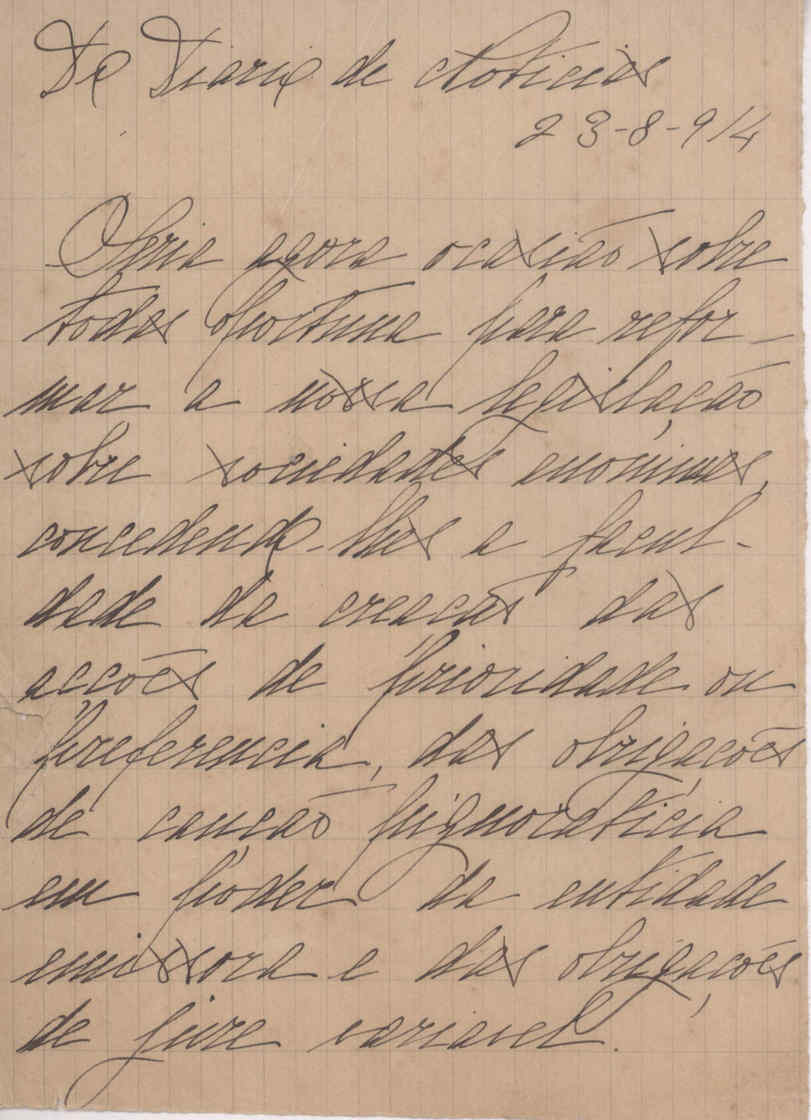 Do Diario de Noticias
23-8-914
Seria agora ocasião sobre
todas oportuna para refor-
mar a nossa legislação
sobre sociedades anonimas,
concedendo-lhes a facul-
dade da creacas das
acções de prioridade ou
preferencia, das obrigações
de caução pignoraticia
em poder da entidade
emissora e das obrigações
de juro variavel.